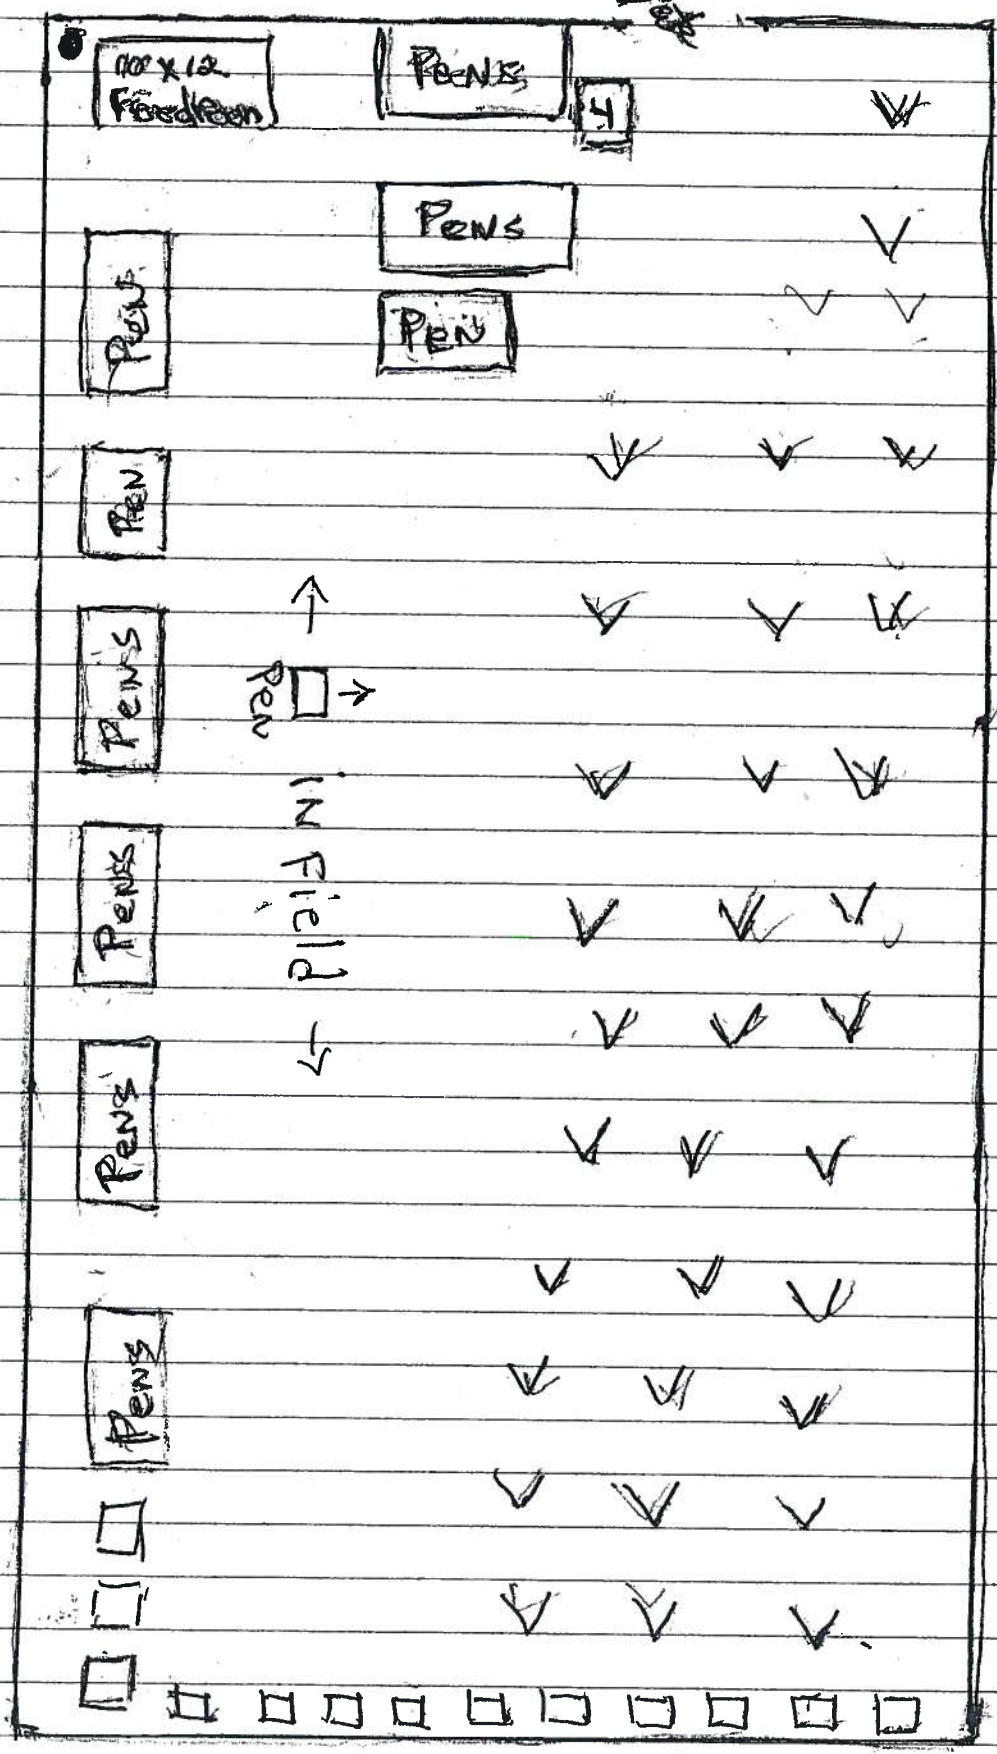 10 x 12
Feedroom
Pens
4
Pens
Pen
Pen
Pen
Pens
Pen
IN Field
Pens
Pens
Pens